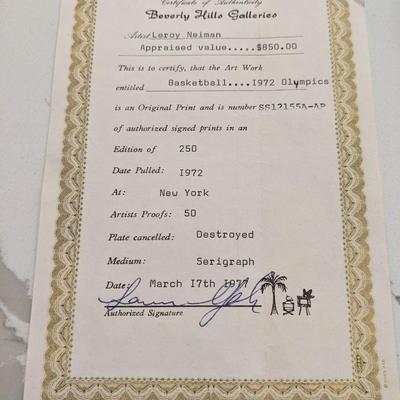 Certificate of Authenticity
Beverly Hills Galleries
Artist Leroy Neiman
Appraised value.....$850.00
This is to certify, that the Art Work
entitled Basketball....1972 Olympics
is an Original Print and is number SS12155A-AP
of authorized signed prints in an
Edition of 250
Date Pulled: 1972
At: New York
Artists Proofs: 50
Plate cancelled: Destroyed
Medium: Serigraph
Date: March 17th 1977
Authorized Signature